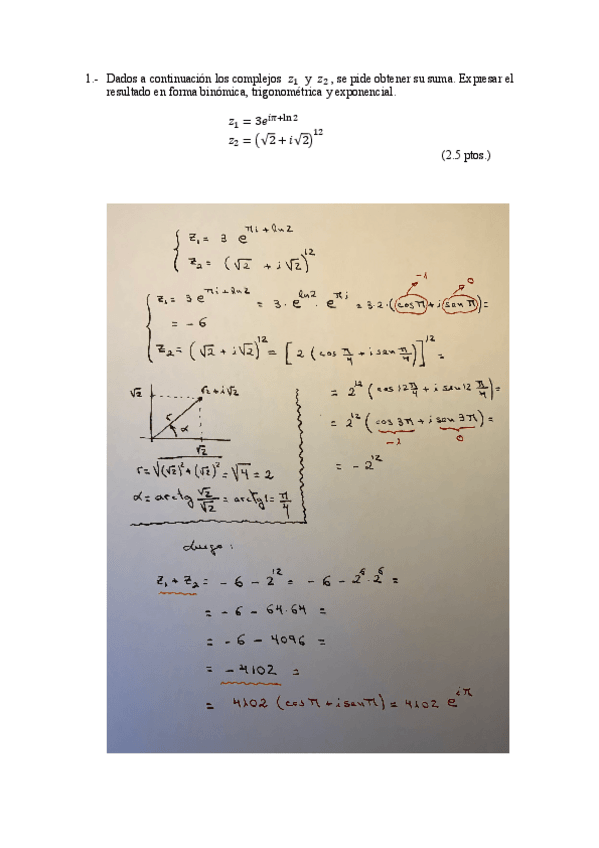 1.- Dados a continuación los complejos z₁ y z₂, se pide obtener su suma. Expresar el
resultado en forma binómica, trigonométrica y exponencial.
z₁ = 3e^{iπ+ln 2}
z₂ = (√2 + i√2)^{12}
(2.5 ptos.)
{ z₁ = 3 e^{πi + ln2}
z₂ = (√2 + i√2)^{12}
{ z₁ = 3 e^{πi + ln2} = 3 · e^{ln2} · e^{πi} = 3·2·(cos π + i sen π) =
-1
0
= -6
z₂ = (√2 + i√2)^{12} = [2 (cos π/4 + i sen π/4)]^{12} =
= 2^{12} (cos 12 π/4 + i sen 12 π/4) =
= 2^{12} (cos 3π + i sen 3π) =
-1
0
= - 2^{12}
√2
√2 + i√2
r
α
√2
r = √(√2)² + (√2)² = √4 = 2
α = arctg √2/√2 = arctg 1 = π/4
Luego :
z₁ + z₂ = - 6 - 2^{12} = - 6 - 2^6 · 2^6 =
= - 6 - 64·64 =
= - 6 - 4096 =
= - 4102 =
= 4102 (cos π + i sen π) = 4102 e^{iπ}